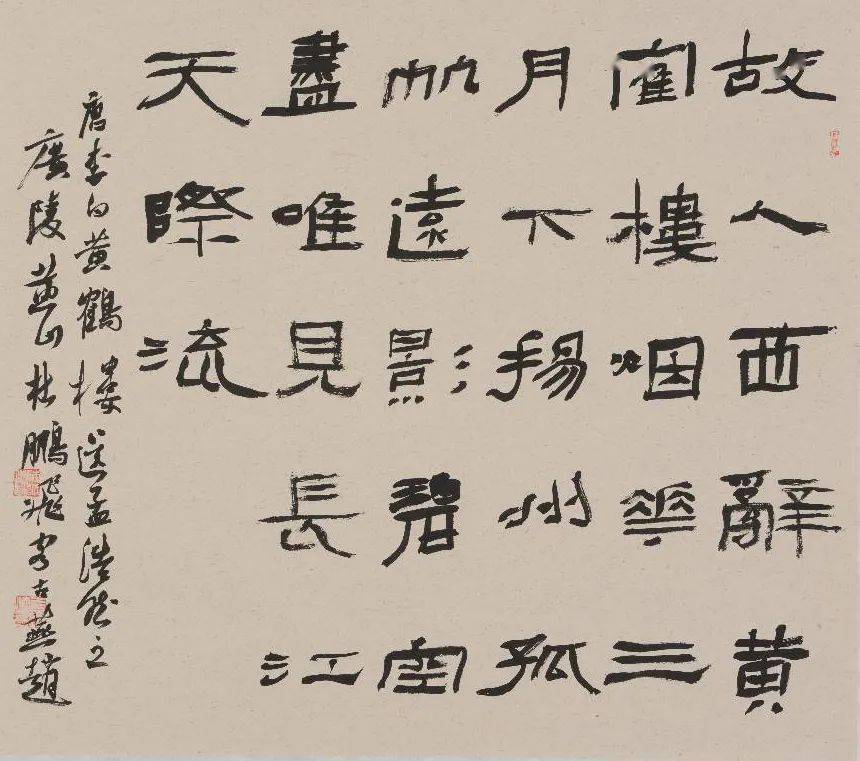 故人西辭黄
寉樓烟華三
月下揚州孤
帆遠影碧空
盡唯見長江
天際流
唐李白黄鶴樓送孟浩然之
廣陵山杜鵬飛客古燕趙